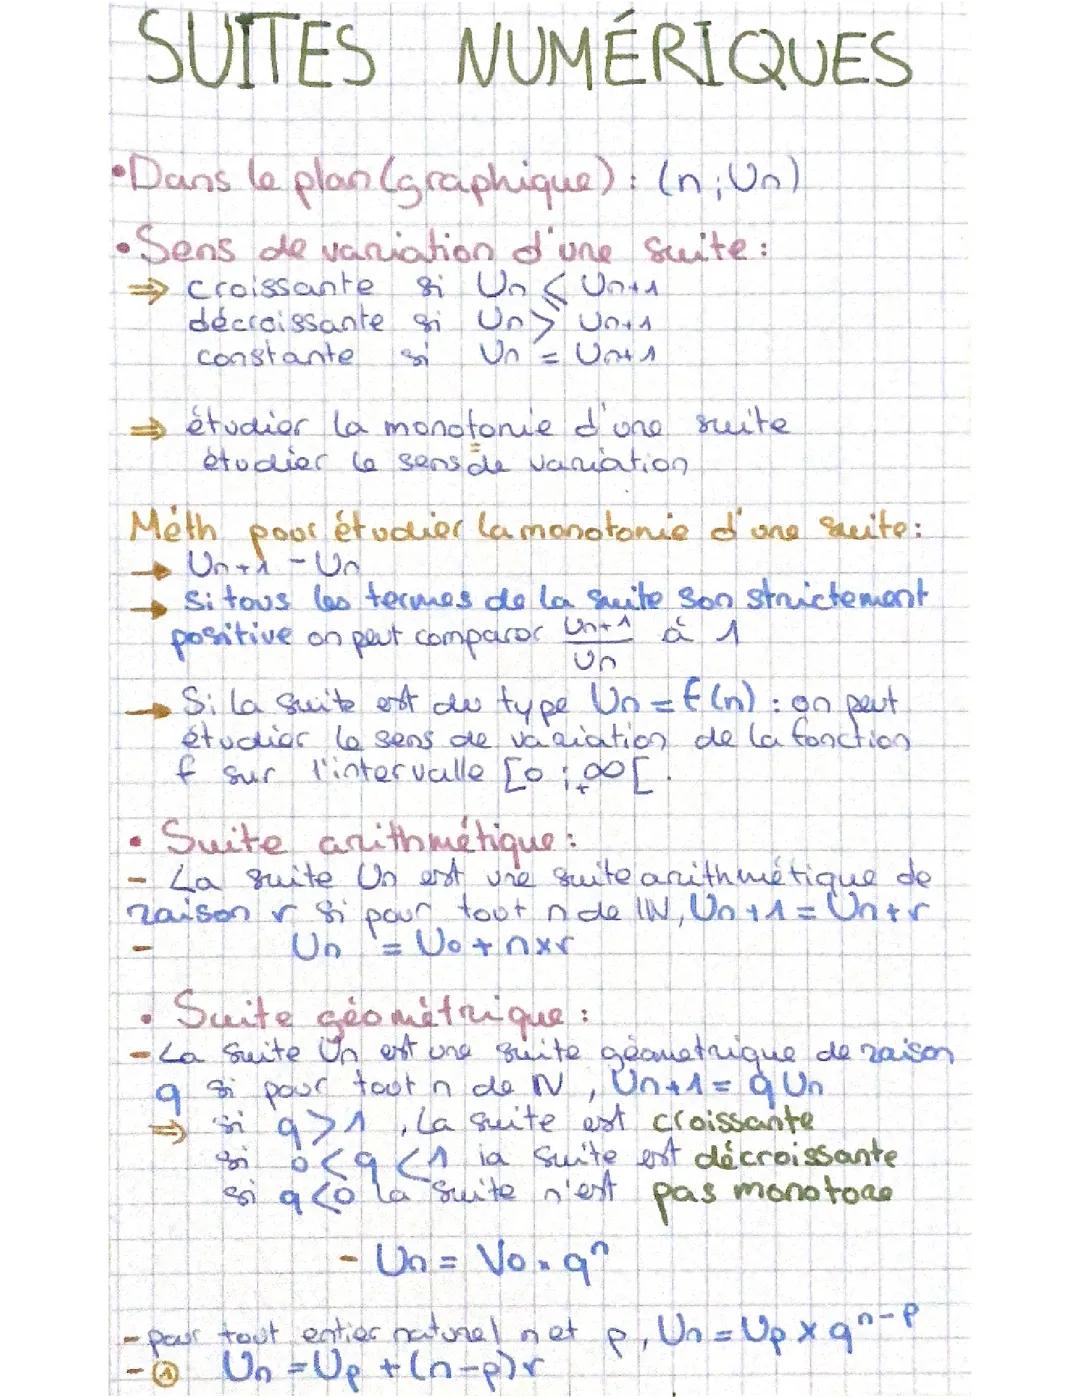 SUITES NUMÉRIQUES
•Dans le plan (graphique) : (n ; Un)
•Sens de variation d'une suite :
⇒ croissante si Un < Un+1
décroissante si Un > Un+1
constante si Un = Un+1
⇒ étudier la monotonie d'une suite
=
étudier le sens de variation
Méth pour étudier la monotonie d'une suite :
→ Un+1 - Un
→ Si tous les termes de la suite son strictement
positive on peut comparer Un+1 à 1
Un
→ Si la suite est du type Un = f(n) : on peut
étudier le sens de variation de la fonction
f sur l'intervalle [0 ; +∞[.
• Suite arithmétique :
- La suite Un est une suite arithmétique de
raison r si pour tout n de IN, Un+1 = Un+r
- Un = U0 + n×r
• Suite géométrique :
- La suite Un est une suite géometrique de raison
q si pour tout n de N, Un+1 = q Un
⇒ si q > 1, la suite est croissante
si 0 < q < 1 la suite est décroissante
si q < 0 la suite n'est pas monotone
- Un = V0 × q^n
- pour tout entier naturel n et p, Un = Up × q^n-p
- ① Un = Up + (n-p)r